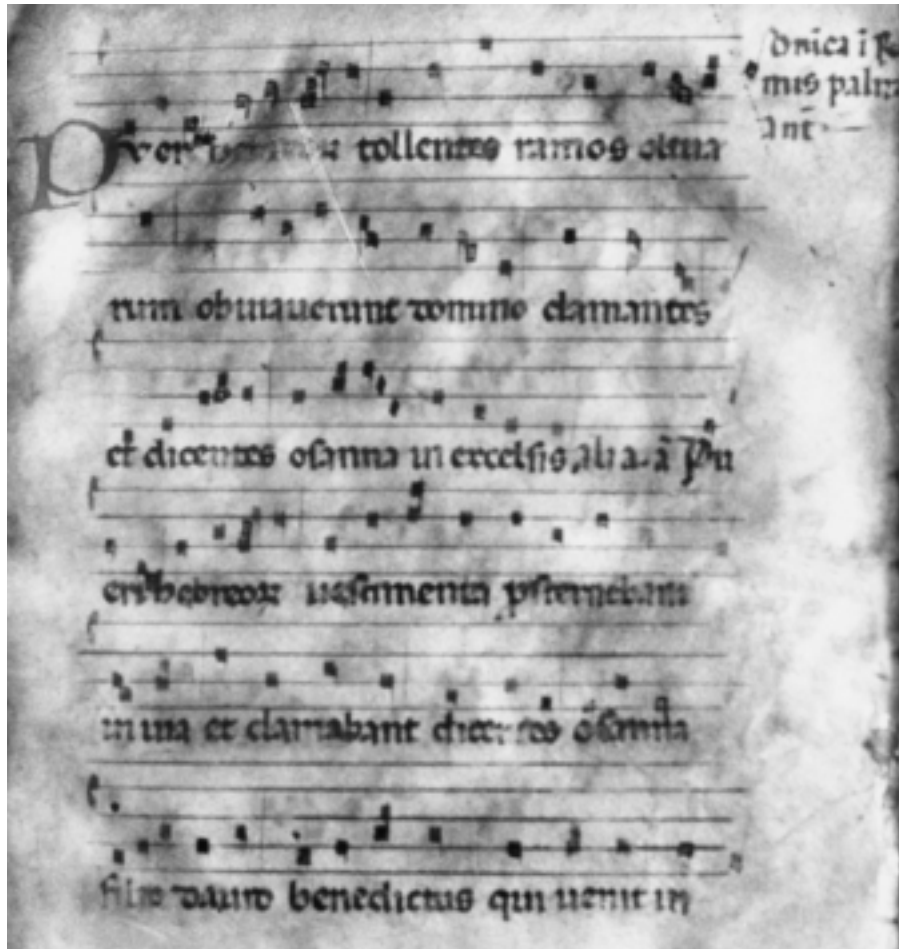 dnica i ra
mis palm
ant
Pver hebreorum tollentes ramos oliua
rum obuiauerunt domino clamantes
et dicentes osanna in excelsis, alia. a Pu
eri hebreoꝝ uestimenta psternebant
in uia et clamabant dicentes osanna
filio dauid benedictus qui uenit in